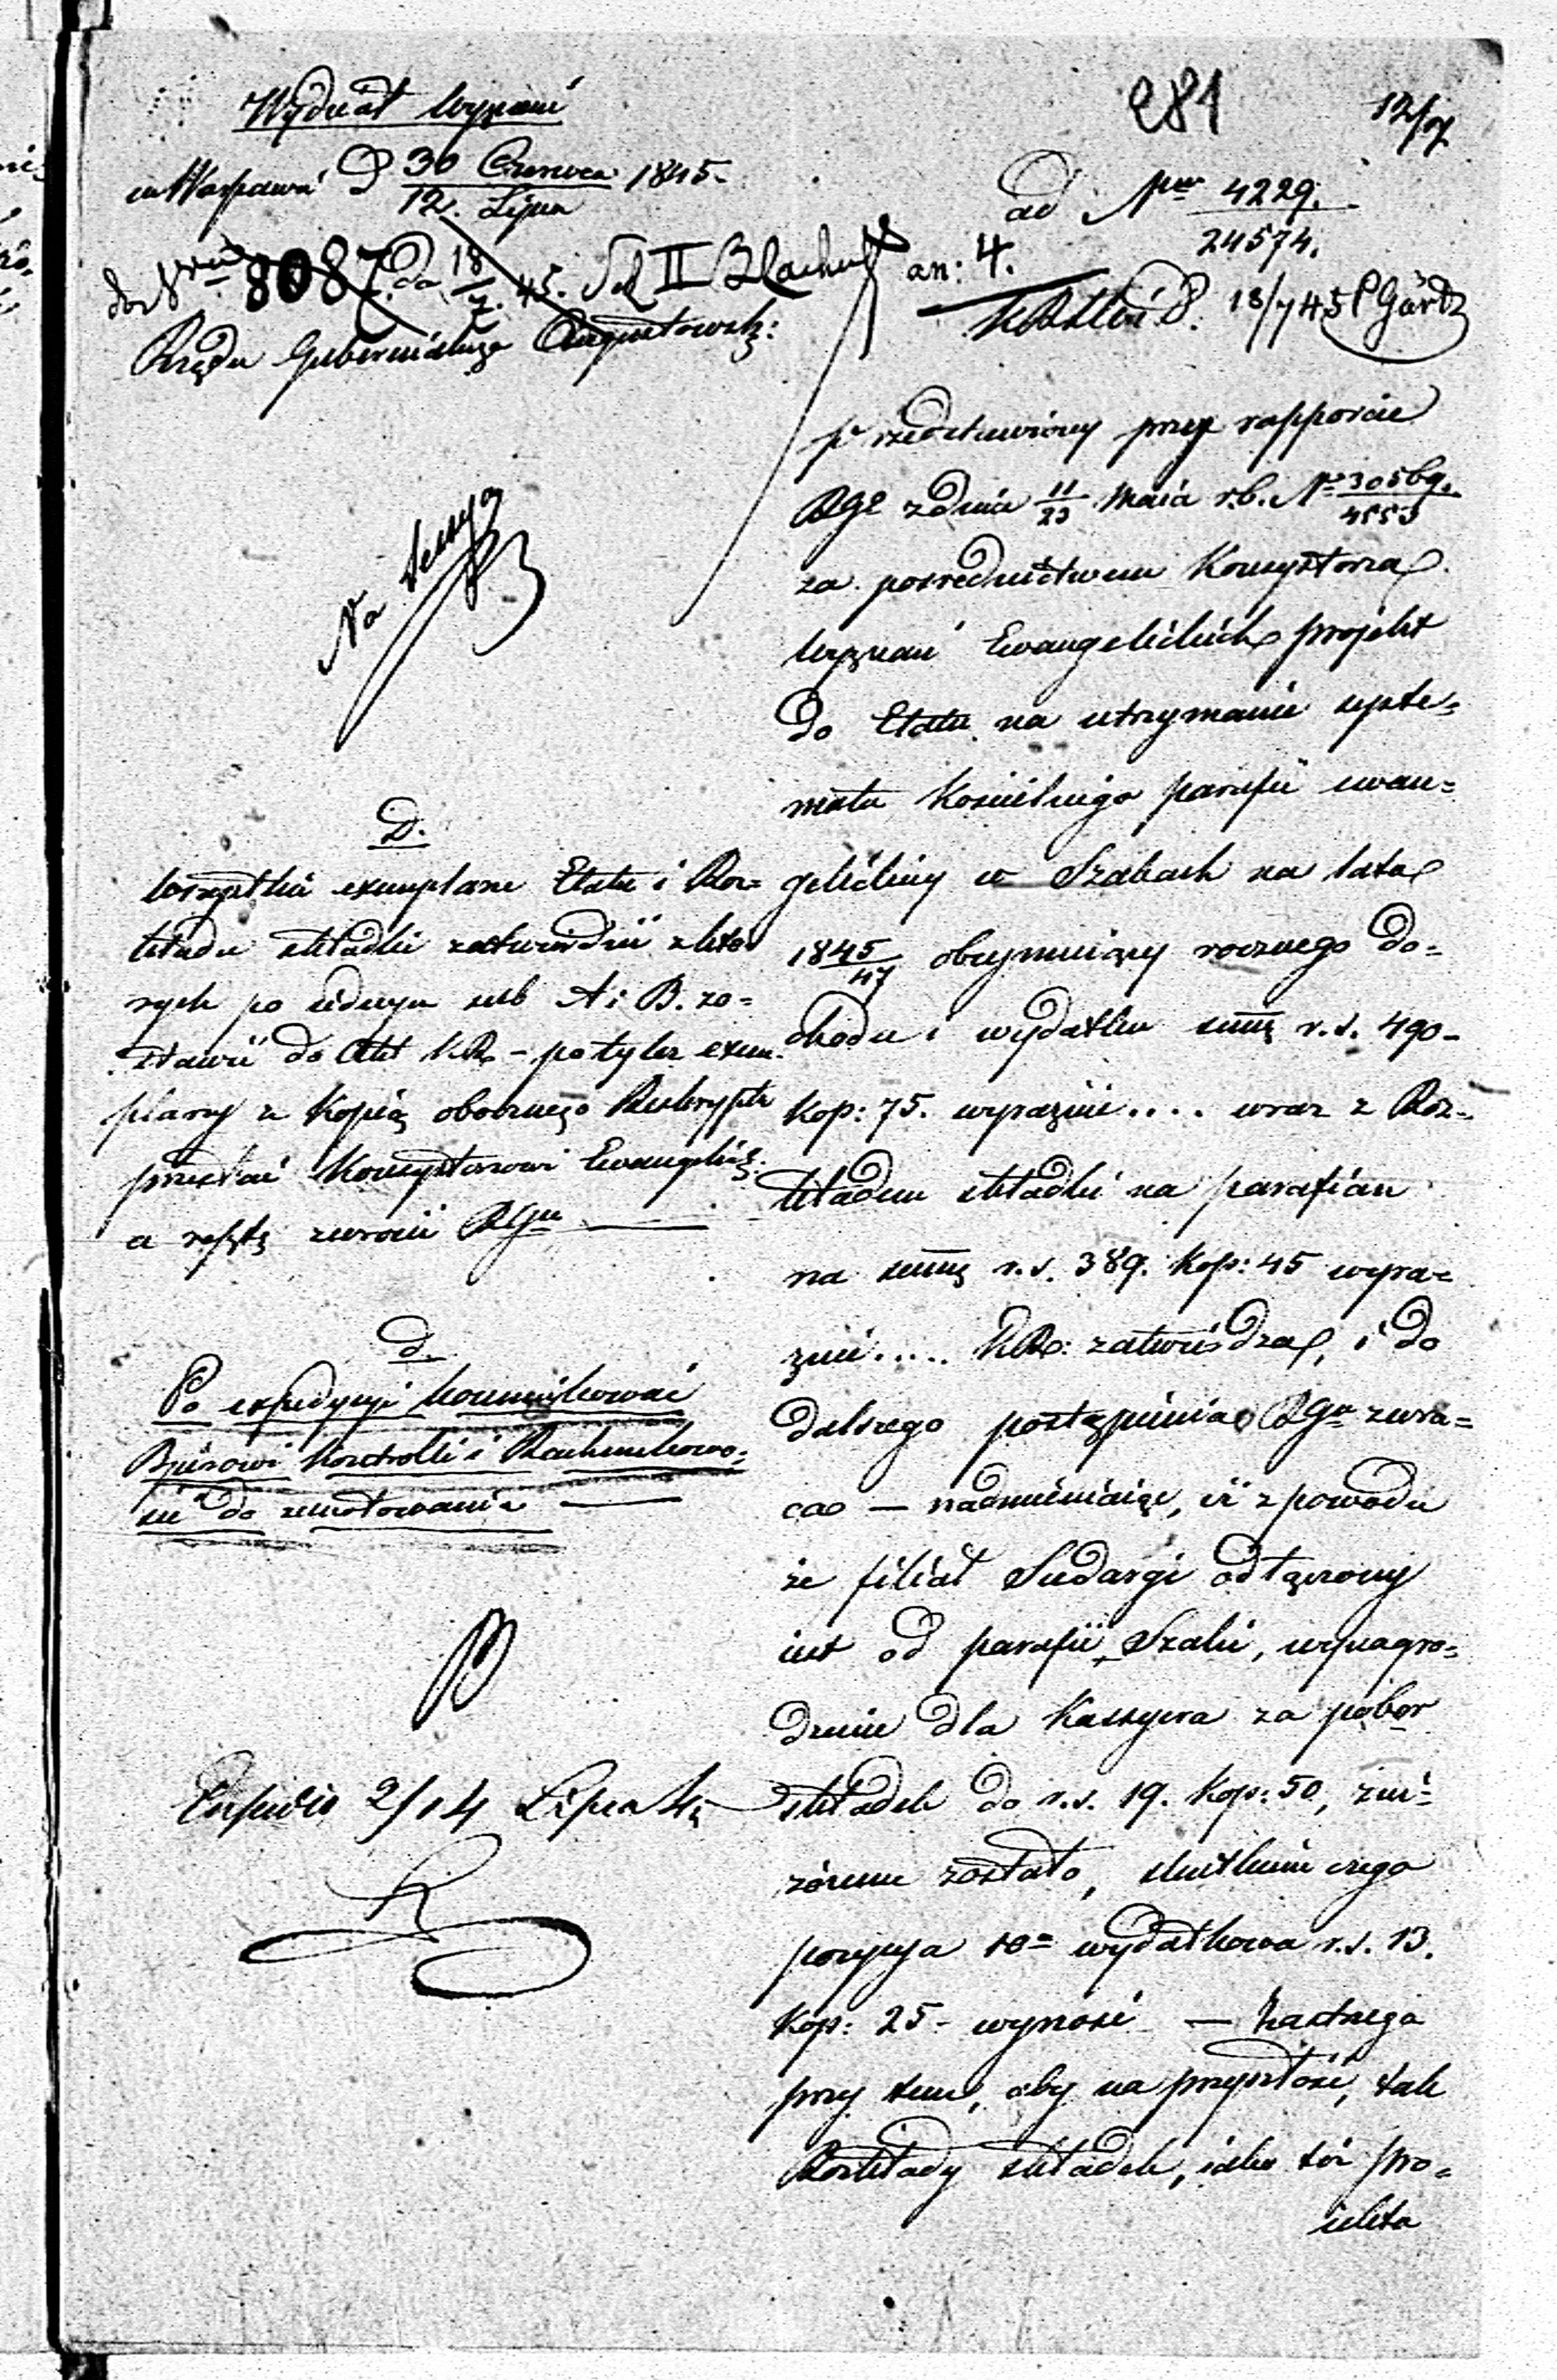 Wydział Wyznań
281
12/7
w Warszawie D 30 Czerwca 1845.
12. Lipca
ad Nrum 4229.
24574.
do Nru 8087 da 18/7. 45. Sek II
an: 4.
18/7 45 Görtz
Rządu Gubernialnego Augustowsk:
Na Sessyą
przedstawiony przy rapporcie
RGo z dnia 11/23 Maia r.b. No
za pośrednictwem Konsystorza
Wyznań Ewangelickich projekt
do Etatu na utrzymanie syste=
matu Kościelnego parafii ewan=
gelickiey w Szakach na lata
1845/47 obeymuiący rocznego do=
chodu i wydatku summę r.s. 490-
Kop: 75. wyraźnie.... wraz z Roz-
kładem składki na parafian
na summę r.s. 389. Kop: 45 wyra=
źnie..... KR: zatwierdza, i do
dalszego postąpienia RGu zwra=
ca — nadmieniaiąc, iż z powodu
że filiał Sudargi odłączony
iest od parafii Szaki, wynagro=
dzenie dla Kassyera za pobór
składek do r.s. 19. Kop: 50, zni=
żone zostało, skutkiem czego
pozycya 10a wydatkowa r.s. 13.
Kop: 25- wynosi — Zastrzega
przy tem, aby na przyszłość, tak
Rozkłady składek, iako też pro=
iekta
D.
Wszystkie exemplarze Etatu i Roz=
kładu składki zatwierdzić z któ=
rych po iednym sub A i B. zo=
stawić do Akt KR - po tyleż exem=
plarzy z Kopią obocznego Reskryptu
przesłać Konsystorzowi Ewangelick:
a resztę zwrócić RGu —
d.
Po expedycyi kommunikować
Biurowi Kontrolli i Rachunkowo=
ści do zanotowania —
2/14 Lipca